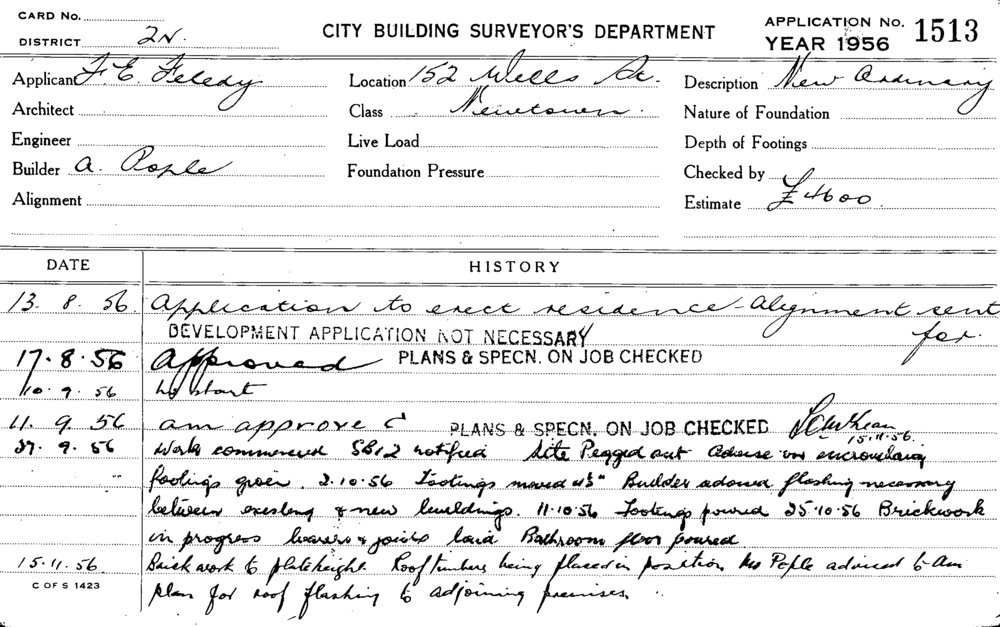 CARD No.
DISTRICT 2N.
CITY BUILDING SURVEYOR'S DEPARTMENT
APPLICATION No. 1513
YEAR 1956
Applicant F. E. Feledy
Location 152 Wells St.
Description New Ordinary
Architect
Class Newtown.
Nature of Foundation
Engineer
Live Load
Depth of Footings
Builder A. Pople
Foundation Pressure
Checked by
Alignment
Estimate £4600
DATE HISTORY
13. 8. 56. Application to erect residence - Alignment sent
for.
DEVELOPMENT APPLICATION NOT NECESSARY
17. 8. 56 Approved PLANS & SPECN. ON JOB CHECKED
10. 9. 56 to start
11. 9. 56 am approved PLANS & SPECN. ON JOB CHECKED
15.11.56.
27. 9. 56 Works commenced SB12 notified Site Pegged out Advise on
footings given. 2.10.56 Footings moved Builder advised flashing necessary
between existing & new buildings. 11.10.56 Footings poured 25.10.56 Brickwork
in progress bearers & joists laid Bathroom floor poured
15.11.56. Brickwork to plate height. Roof timbers being placed in position Mr Pople advised to am
plan for roof flashing to adjoining premises.
C OF S 1423